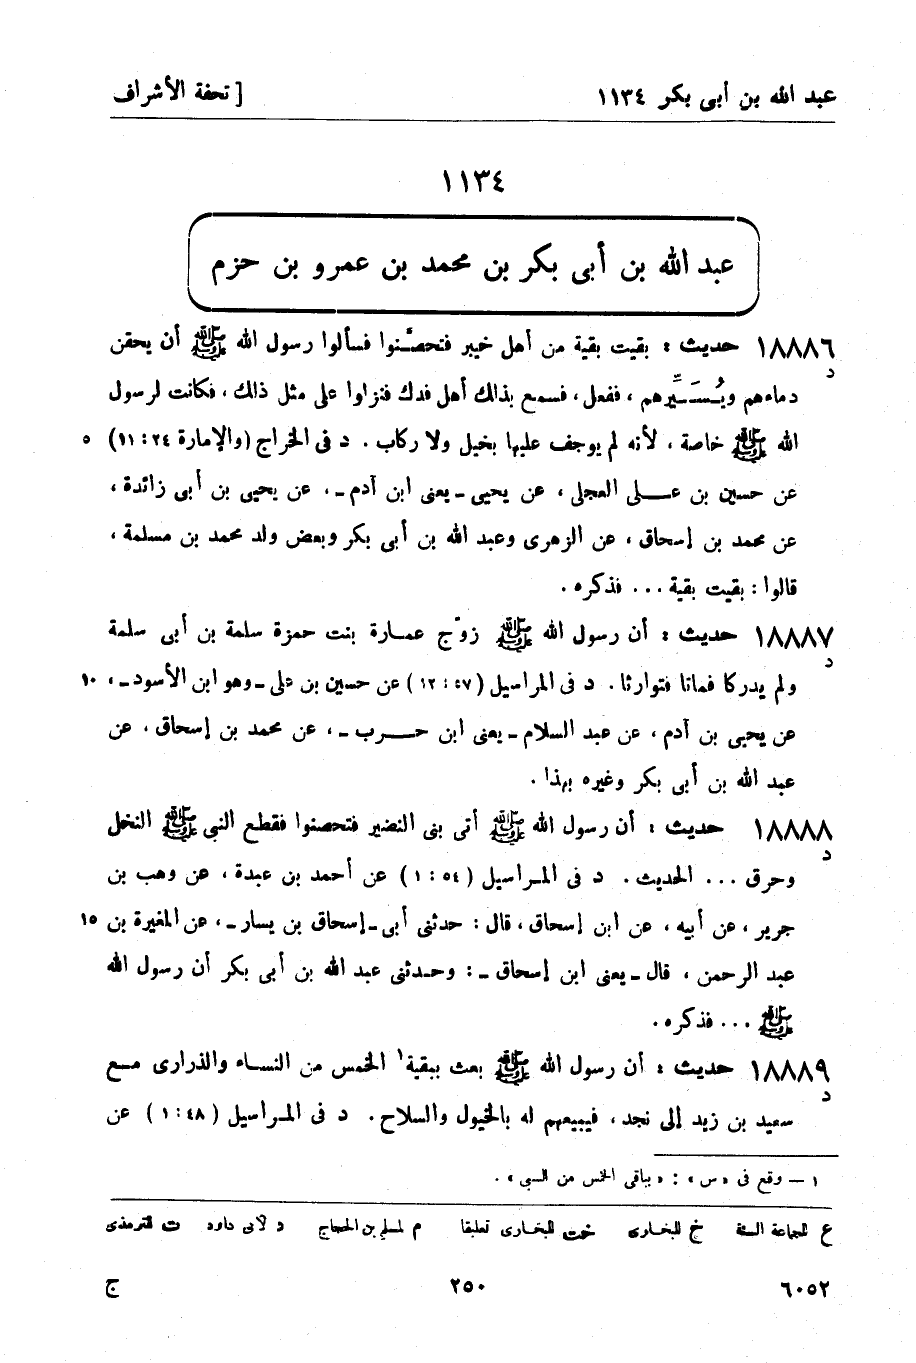 عبد الله بن أبى بكر ١١٣٤ [ تحفة الأشراف
١١٣٤
عبد الله بن أبى بكر بن محمد بن عمرو بن حزم
١٨٨٨٦ حديث : بقيت بقية من أهل خيبر فتحصَّنوا فسألوا رسول الله ﷺ أن يحقن
د
دماءهم ويُسَيِّرهم ، ففعل ، فسمع بذالك أهل فدك فنزلوا على مثل ذالك ، فكانت لرسول
الله ﷺ خاصة ، لأنه لم يوجف عليها بخيل ولا ركاب . د فى الخراج (والإمارة ٢٤ : ١١) ٥
عن حسين بن عــلى العجلى ، عن يحيى ـ يعنى ابن آدم ـ ، عن يحيى بن أبى زائدة ،
عن محمد بن إسحاق ، عن الزهرى وعبد الله بن أبى بكر وبعض ولد محمد بن مسلمة ،
قالوا : بقيت بقية ... فذكره .
١٨٨٨٧ حديث : أن رسول الله ﷺ زوّج عمـارة بنت حمزة سلمة بن أبى سلمة
د
ولم يدركا فماتا فتوارثا . د فى المراسيل (٤٧ : ١٢) عن حسين بن على ـ وهو ابن الأسود ـ ، ١٠
عن يحيى بن آدم ، عن عبد السلام ـ يعنى ابن حــرب ـ ، عن محمد بن إسحاق ، عن
عبد الله بن أبى بكر وغيره بهذا .
١٨٨٨٨ حديث : أن رسول الله ﷺ أتى بنى النضير فتحصنوا فقطع النبى ﷺ النخل
د
وحرق ... الحديث . د فى المـراسيل (٥٤ : ١) عن أحمد بن عبدة ، عن وهب بن
جرير ، عن أبيه ، عن ابن إسحاق ، قال : حدثنى أبى ـ إسحاق بن يسار ـ ، عن المغيرة بن ١٥
عبد الرحمن ، قال ـ يعنى ابن إسحاق ـ : وحـدثنى عبد الله بن أبى بكر أن رسول الله
ﷺ ... فذكره .
١٨٨٨٩ حديث : أن رسول الله ﷺ بعث ببقية١ الخمس من النسـاء والذرارى مــع
د
سعيد بن زيد إلى نجد ، فيبيعهم له بالخيول والسلاح . د فى المـراسيل (٤٨ : ١) عن
١ — وقع فى «س» : «بباقى الخمس من السبى» .
ع للجماعة الستة خ للبخـارى خت للبخـارى تعليقا م لمسلم بن الحجاج د لابى داود ت للترمذى
٦٠٥٢ ٢٥٠ ج